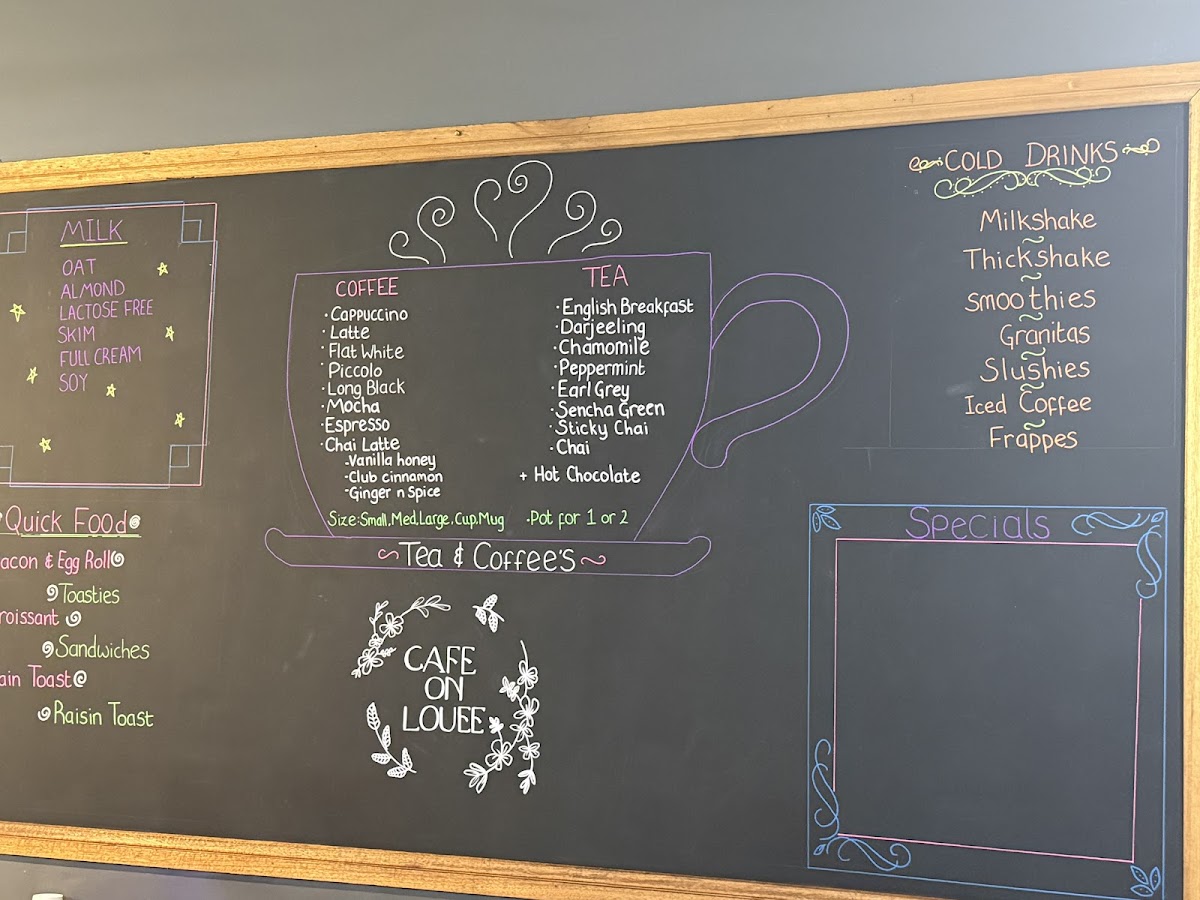 MILK
OAT
ALMOND
LACTOSE FREE
SKIM
FULL CREAM
SOY
Quick Food
acon & Egg Roll
Toasties
roissant
Sandwiches
ain Toast
Raisin Toast
COFFEE
· Cappuccino
· Latte
· Flat White
· Piccolo
· Long Black
· Mocha
· Espresso
· Chai Latte
- Vanilla honey
- Club cinnamon
- Ginger n Spice
Size: Small, Med, Large, Cup, Mug
TEA
· English Breakfast
· Darjeeling
· Chamomile
· Peppermint
· Earl Grey
· Sencha Green
· Sticky Chai
· Chai
+ Hot Chocolate
· Pot for 1 or 2
~Tea & Coffee's~
CAFE
ON
LOUEE
COLD DRINKS
Milkshake
~
Thickshake
~
Smoothies
~
Granitas
~
Slushies
~
Iced Coffee
~
Frappes
Specials